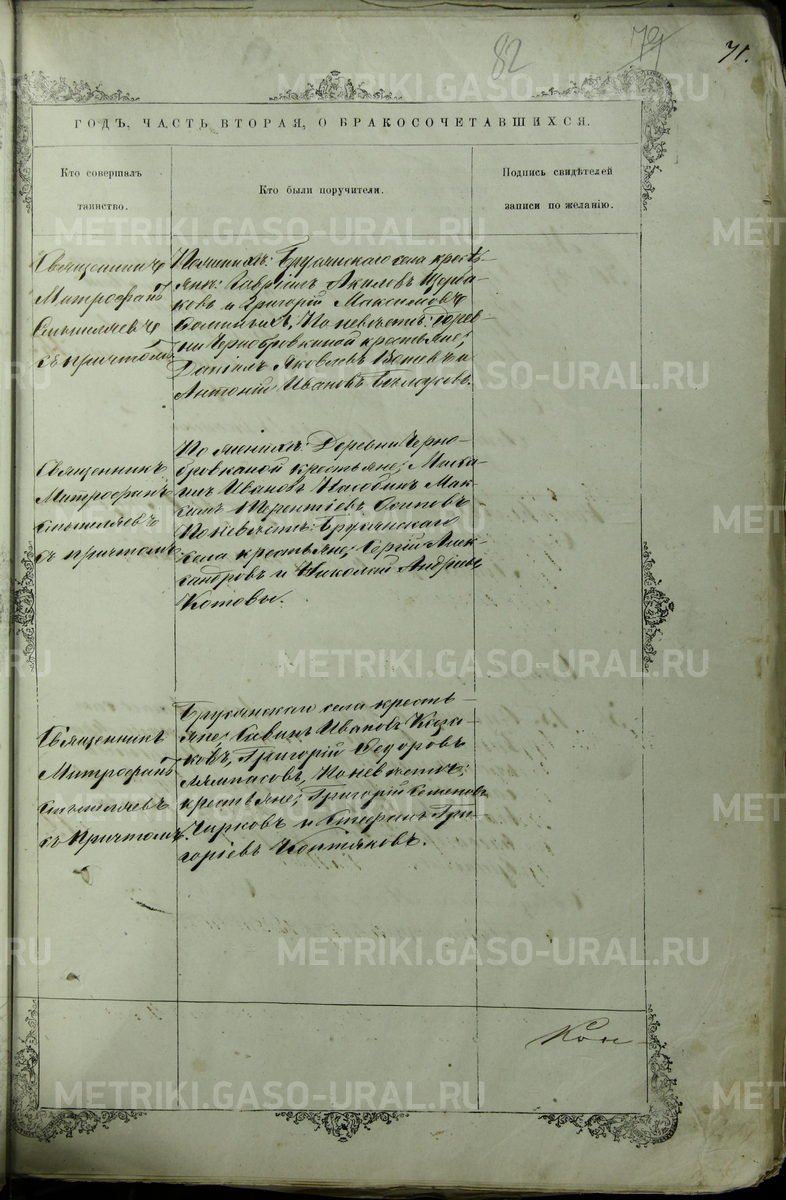 82
79
71.
METRIKI.GASO-URAL.RU
ГОДЪ. ЧАСТЬ ВТОРАЯ, О БРАКОСОЧЕТАВШИХСЯ.
Кто совершалъ
таинство.
Кто были поручители.
Подпись свидѣтелей
записи по желанію.
Священникъ
Митрофанъ
съ причтомъ
По женихѣ: Брусянскаго села кресть-
яне: Гавріилъ Акиловъ Щерба-
ковъ и Григорій Максимовъ
По невѣстѣ: дерев-
ни Чернобровкиной крестьяне;
Даніилъ Яковлевъ и
Антоній Ивановъ Бѣлоусовъ.
Священникъ
Митрофанъ
съ причтомъ
По женихѣ: Деревни Черно-
бровкиной крестьяне; Миха-
илъ Ивановъ Мак-
симъ Терентіевъ Осиповъ
По невѣстѣ: Брусянскаго
села крестьяне; Сергій Алек-
сандровъ и Николай Андріевъ
Котовы.
Священникъ
Митрофанъ
съ Причтомъ.
Брусянскаго села кресть-
яне; Савинъ Ивановъ Коза-
ковъ, Григорій Ѳедоровъ
Лямпасовъ, По невѣстѣ;
крестьяне; Григорій Семеновъ
Чирковъ и Стефанъ Гри-
горіевъ Коптяковъ.